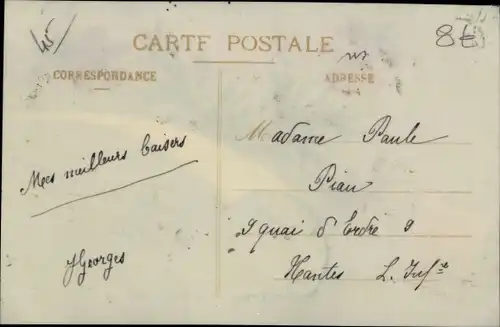 45
8€
CARTE POSTALE
CORRESPONDANCE
ADRESSE
Mes meilleurs baisers
Georges
Madame Paule
Piau
9 quai d'Erdre 9
Nantes L. Infre